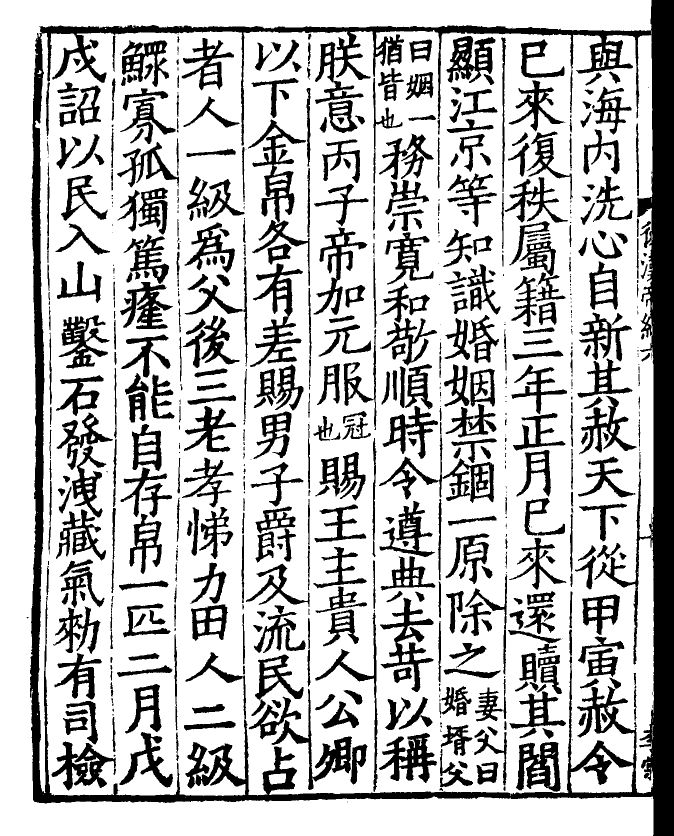 與海内洗心自新其赦天下從甲寅赦令
巳來復秩屬籍三年正月巳來還贖其閻
顯江京等知識婚姻禁錮一原除之妻父曰婚壻父
曰姻一猶皆也務崇寬和敬順時令遵典去苛以稱
朕意丙子帝加元服冠也賜王主貴人公卿
以下金帛各有差賜男子爵及流民欲占
者人一級爲父後三老孝悌力田人二級
鰥寡孤獨篤癃不能自存帛一匹二月戊
戌詔以民入山鑿石發洩藏氣勑有司檢